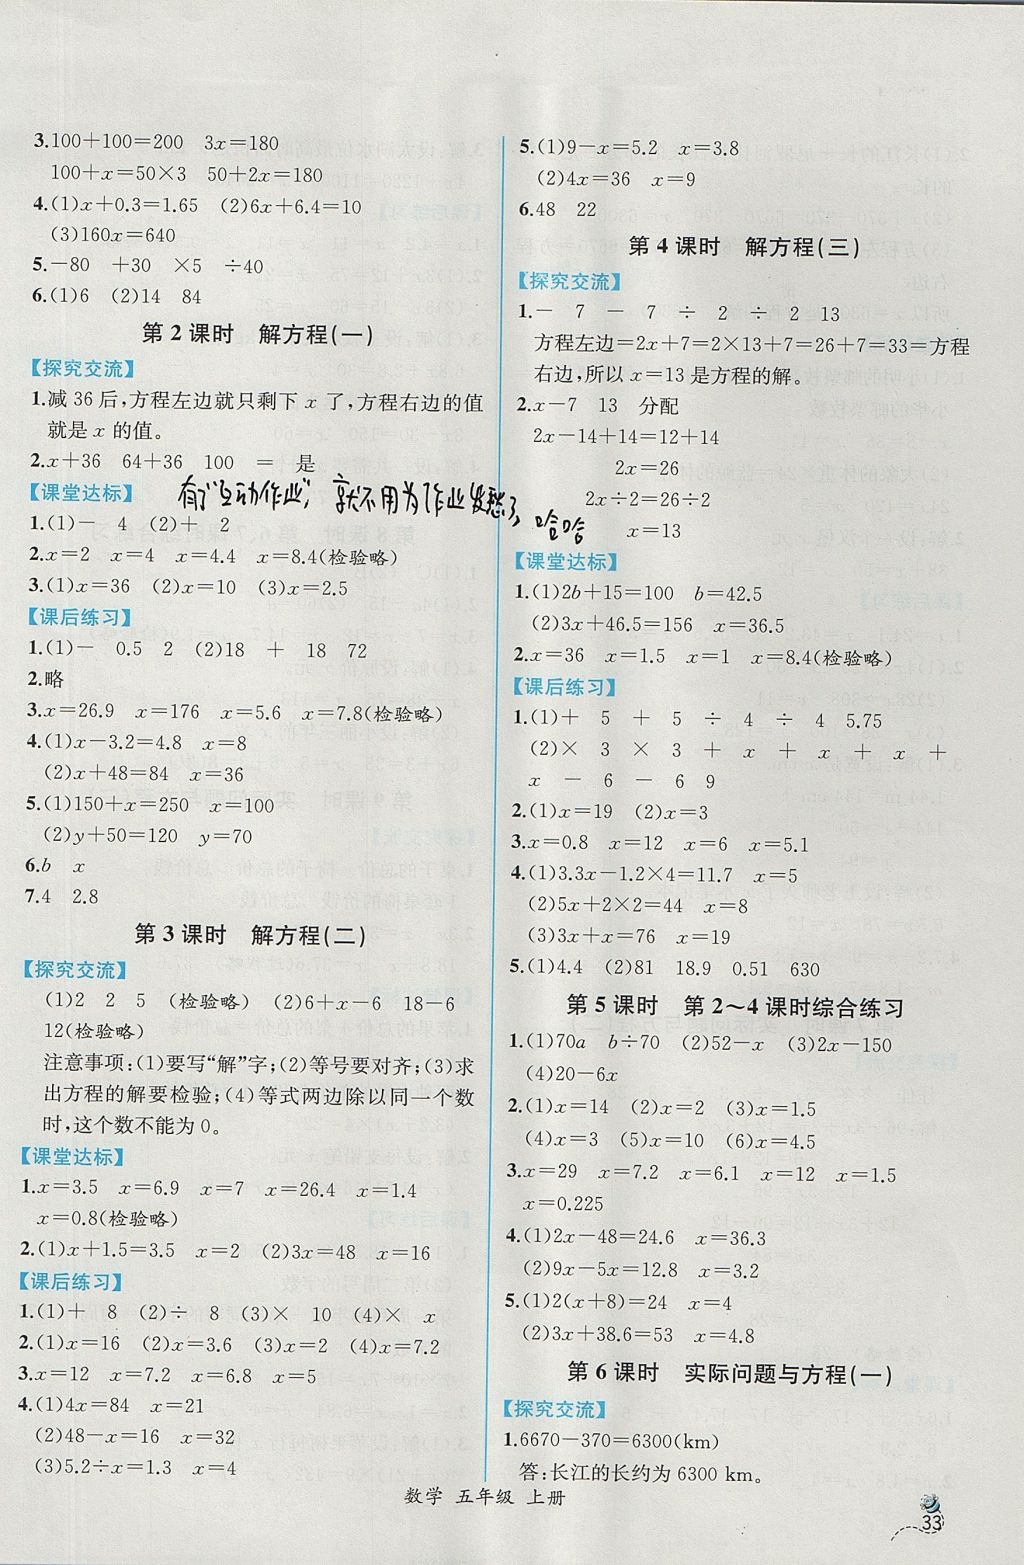 3.100+100=200 3x=180
100+x=50×3 50+2x=180
4.(1)x+0.3=1.65 (2)6x+6.4=10
(3)160x=640
5.-80 +30 ×5 ÷40
6.(1)6 (2)14 84
第2课时 解方程(一)
【探究交流】
1.减36后,方程左边就只剩下x了,方程右边的值
就是x的值。
2.x+36 64+36 100 = 是
【课堂达标】
1.(1)- 4 (2)+ 2
2.x=2 x=4 x=4.4 x=8.4(检验略)
3.(1)x=36 (2)x=10 (3)x=2.5
【课后练习】
1.(1)- 0.5 2 (2)18 + 18 72
2.略
3.x=26.9 x=176 x=5.6 x=7.8(检验略)
4.(1)x-3.2=4.8 x=8
(2)x+48=84 x=36
5.(1)150+x=250 x=100
(2)y+50=120 y=70
6.b x
7.4 2.8
第3课时 解方程(二)
【探究交流】
(1)2 2 5 (检验略) (2)6+x-6 18-6
12(检验略)
注意事项:(1)要写“解”字;(2)等号要对齐;(3)求
出方程的解要检验;(4)等式两边除以同一个数
时,这个数不能为0。
【课堂达标】
1.x=3.5 x=6.9 x=7 x=26.4 x=1.4
x=0.8(检验略)
2.(1)x+1.5=3.5 x=2 (2)3x=48 x=16
【课后练习】
1.(1)+ 8 (2)÷ 8 (3)× 10 (4)× x
2.(1)x=16 (2)x=3.6 (3)x=2 (4)x=7.2
3.x=12 x=7.2 x=6.8 x=5
4.(1)4x=84 x=21
(2)48-x=16 x=32
(3)5.2÷x=1.3 x=4
有了“互动作业”,就不用为作业发愁了,哈哈
5.(1)9-x=5.2 x=3.8
(2)4x=36 x=9
6.48 22
第4课时 解方程(三)
【探究交流】
1.- 7 - 7 ÷ 2 ÷ 2 13
方程左边=2x+7=2×13+7=26+7=33=方程
右边,所以x=13是方程的解。
2.x-7 13 分配
2x-14+14=12+14
2x=26
2x÷2=26÷2
x=13
【课堂达标】
1.(1)2b+15=100 b=42.5
(2)3x+46.5=156 x=36.5
2.x=36 x=1.5 x=1 x=8.4(检验略)
【课后练习】
1.(1)+ 5 + 5 ÷ 4 ÷ 4 5.75
(2)× 3 × 3 + x + x + x +
x - 6 - 6 9
2.(1)x=19 (2)x=3
3.x=0.8 x=12 x=6 x=5.1
4.(1)3.3x-1.2×4=11.7 x=5
(2)5x+2×2=44 x=8
(3)3x+x=76 x=19
5.(1)4.4 (2)81 18.9 0.51 630
第5课时 第2~4课时综合练习
1.(1)70a b÷70 (2)52-x (3)2x-150
(4)20-6x
2.(1)x=14 (2)x=2 (3)x=1.5
(4)x=3 (5)x=10 (6)x=4.5
3.x=29 x=7.2 x=6.1 x=12 x=1.5
x=0.225
4.(1)2x-48=24.6 x=36.3
(2)9x-5x=12.8 x=3.2
5.(1)2(x+8)=24 x=4
(2)3x+38.6=53 x=4.8
第6课时 实际问题与方程(一)
【探究交流】
1.6670-370=6300(km)
答:长江的长约为6300 km。
数学 五年级 上册
33